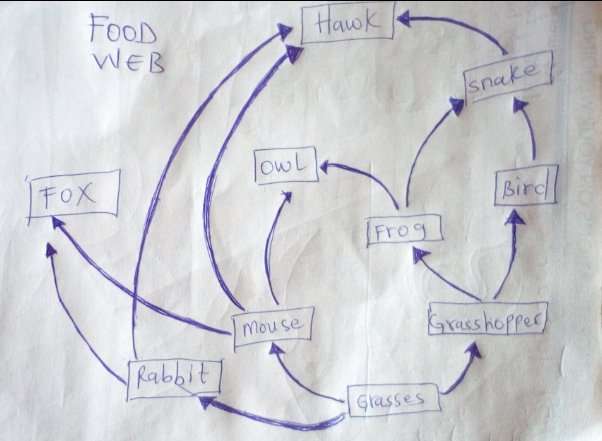 FOOD
WEB
Hawk
snake
owl
Bird
FOX
Frog
mouse
Grasshopper
Rabbit
Grasses